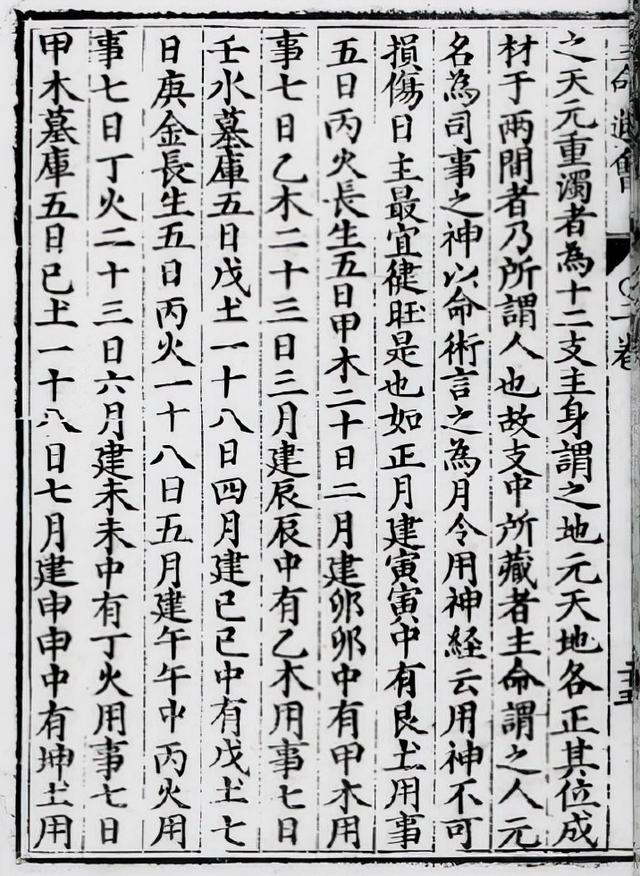 之天元重濁者為十二支主身謂之地元天地各正其位成
材于兩間者乃所謂人也故支中所藏者主命謂之人元
名為司事之神以命術言之為月令用神経云用神不可
損傷日主最宜徤旺是也如正月建寅寅中有艮土用事
五日丙火長生五日甲木二十日二月建卯卯中有甲木用
事七日乙木二十三日三月建辰辰中有乙木用事七日
壬水墓庫五日戊土一十八日四月建巳巳中有戊土七
日庚金長生五日丙火一十八日五月建午午中丙火用
事七日丁火二十三日六月建未未中有丁火用事七日
甲木墓庫五日己土一十八日七月建申申中有坤土用